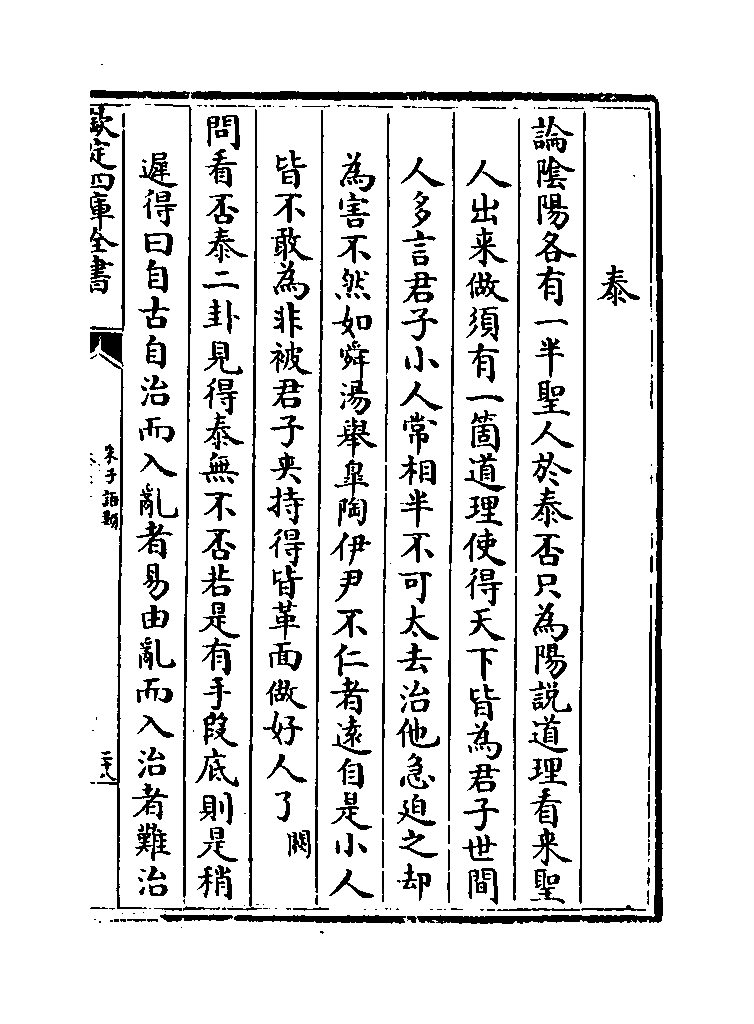 泰
論陰陽各有一半聖人於泰否只為陽説道理看来聖
人出来做須有一箇道理使得天下皆為君子世間
人多言君子小人常相半不可太去治他急迫之却
為害不然如舜湯舉臯陶伊尹不仁者逺自是小人
皆不敢為非被君子夾持得皆革面做好人了 閎
問看否泰二卦見得泰無不否若是有手段底則是稍
遲得曰自古自治而入亂者易由亂而入治者難治
欽定四庫全書
朱子語類
二十八